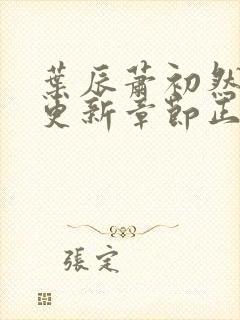 葉辰蕭初然
更新章節正
張定